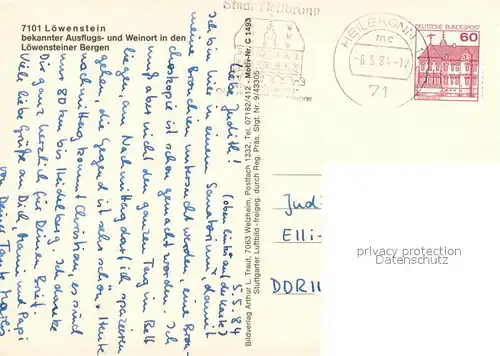 7101 Löwenstein
bekannter Ausflugs- und Weinort in den
Löwensteiner Bergen
Stadt Heilbronn
HEILBRONN
mc
-6.5.84-12
71
DEUTSCHE BUNDESPOST
60
(oben links auf der Karte)
5.5.84
Liebe Judith!
Ich bin hier in einem Sanatorium, damit
meine Bronchien untersucht werden, eine Bron-
choskopie ist schon gemacht worden. Ich
muß aber nicht den ganzen Tag im Bett
liegen, am Nachmittag darf ich spazieren
gehen, die Gegend ist sehr schön. Heute
nachmittag kommt Christian, es sind
nur 80 km bis Heidelberg. Ich danke
Dir ganz herzlich für Deinen Brief.
Viele liebe Grüße an Dich, Mami und Papi
von Deiner Tante
Bildverlag Arthur L. Traut, 7063 Welzheim, Postfach 1332, Tel. 07182/412 · Motiv-Nr. C 1493
Stuttgarter Luftbild - freigeg. durch Reg. Präs. Stgt. Nr. 9/43305
Judi
Elli-
privacy protection
ansichtskarten-center.de